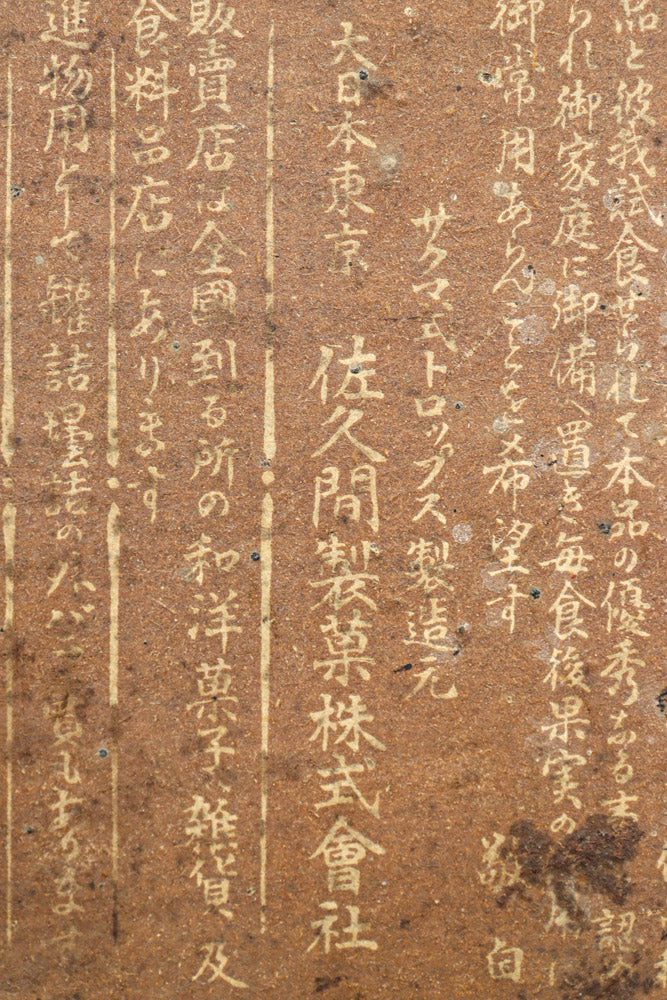 品と彼我試食せられて本品の優秀なる
認
られ御家庭に御備へ置き毎食後果実の
御常用あらんことを希望す
敬白
サクマ式ドロップス製造元
大日本東京 佐久間製菓株式會社
販賣店は全國到る所の和洋菓子、雑貨、及
食料品店にあります
進物用として罐詰壜詰の
もあります